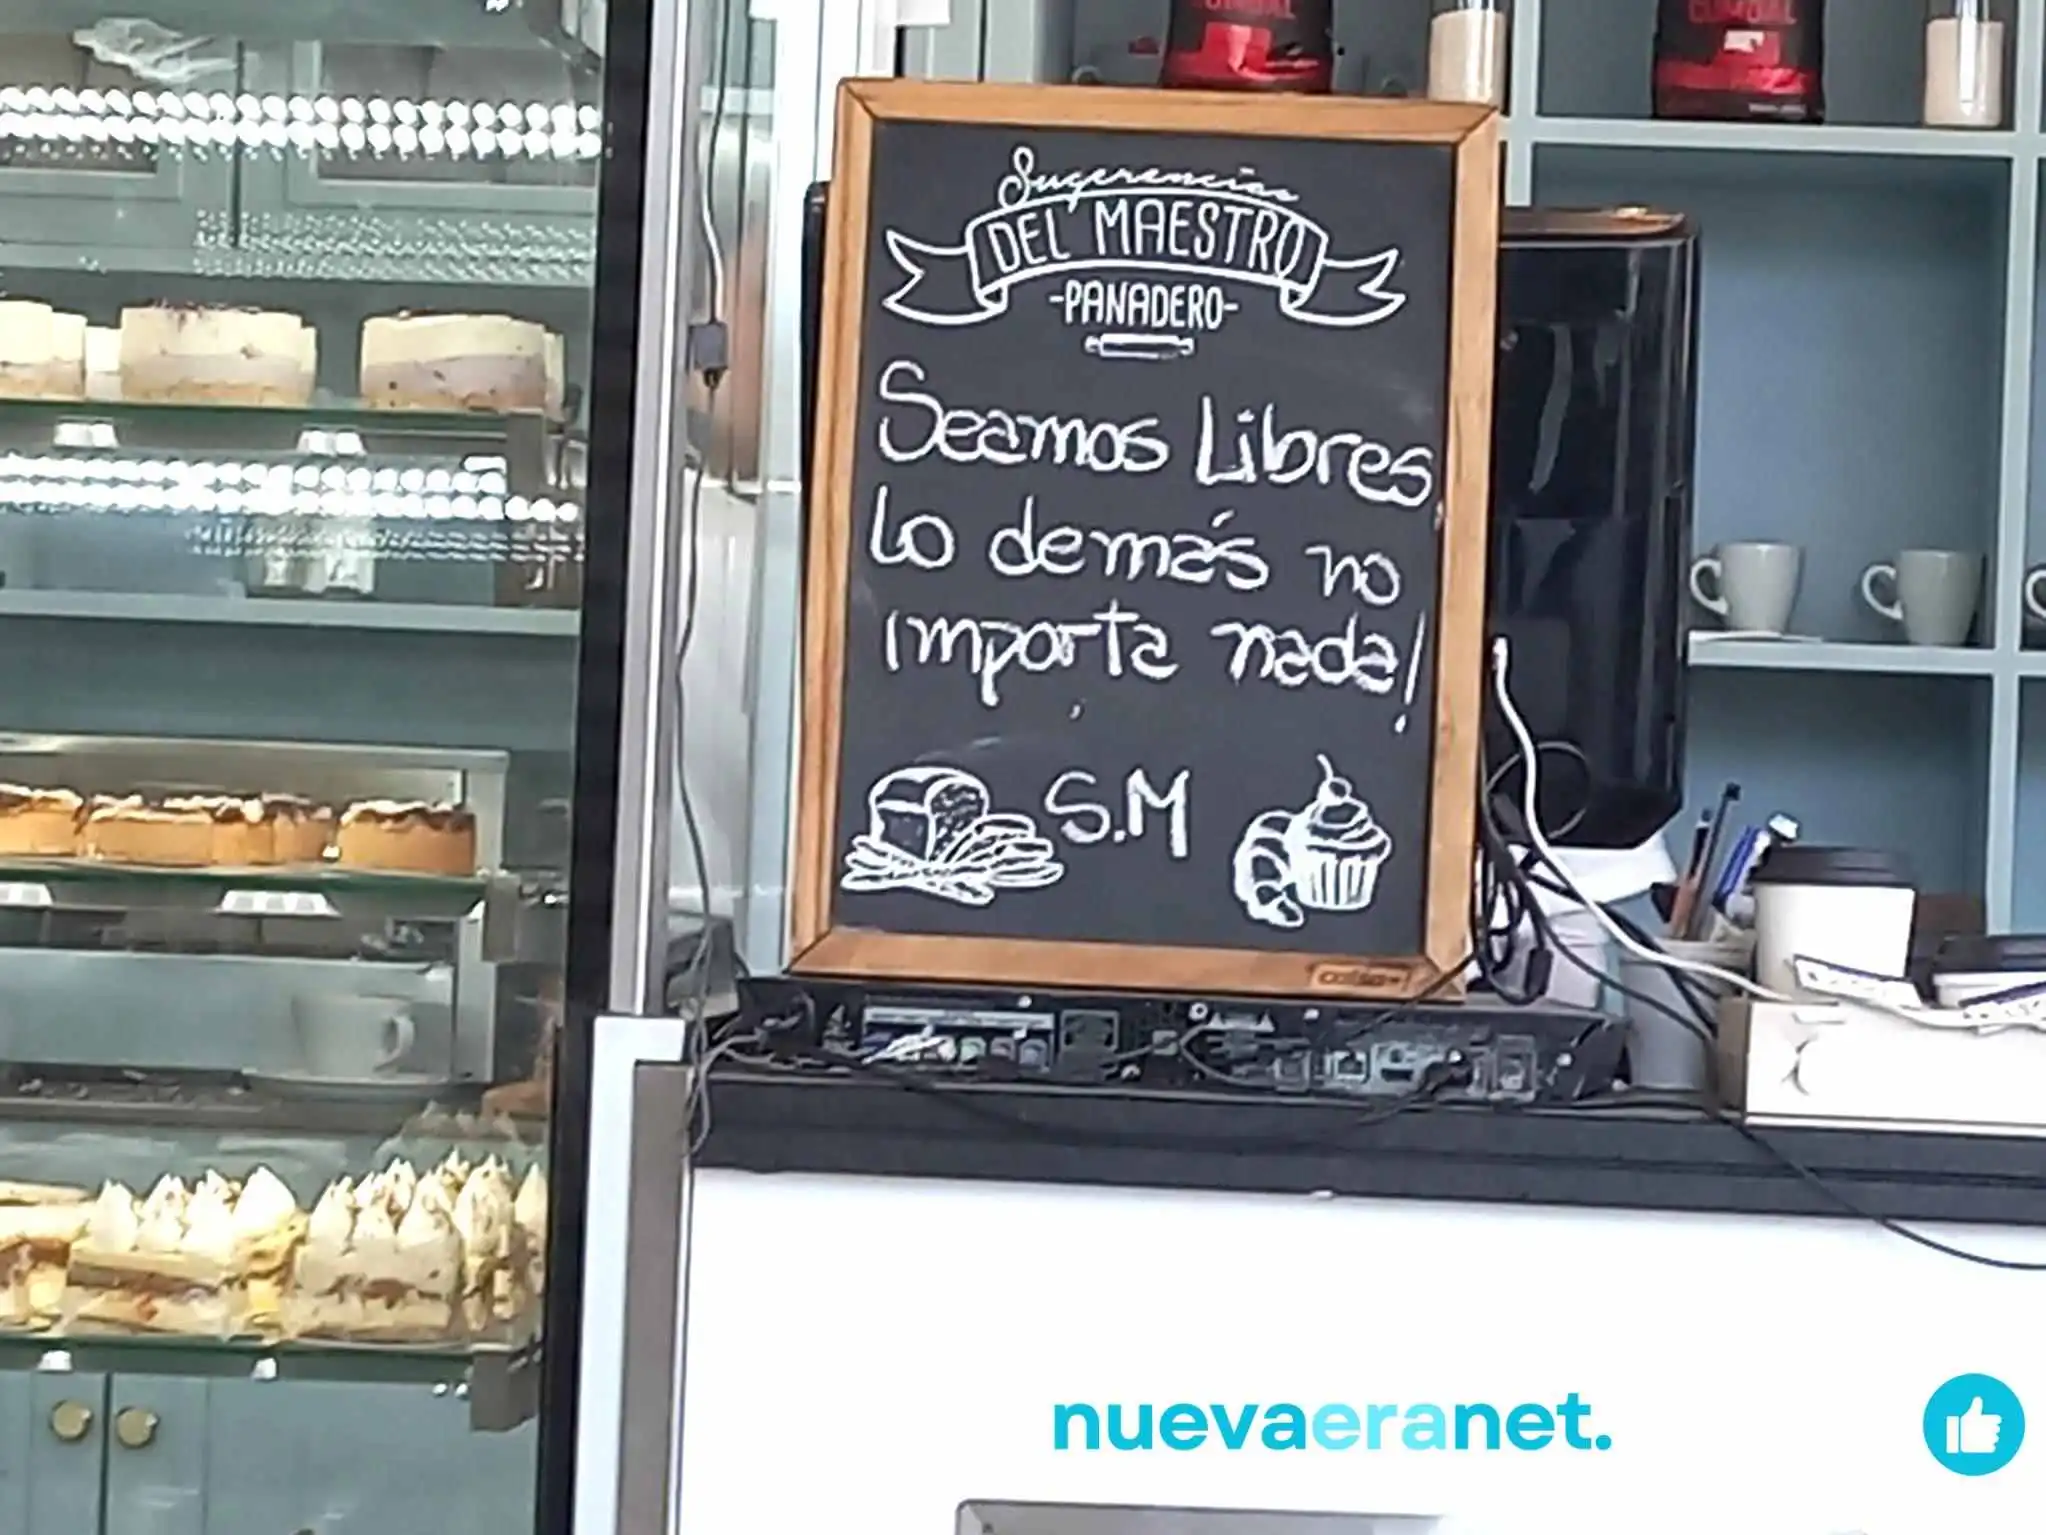 Sugerencias
DEL MAESTRO
-PANADERO-
Seamos Libres
lo demás no
importa nada!
S.M
nuevaeranet.